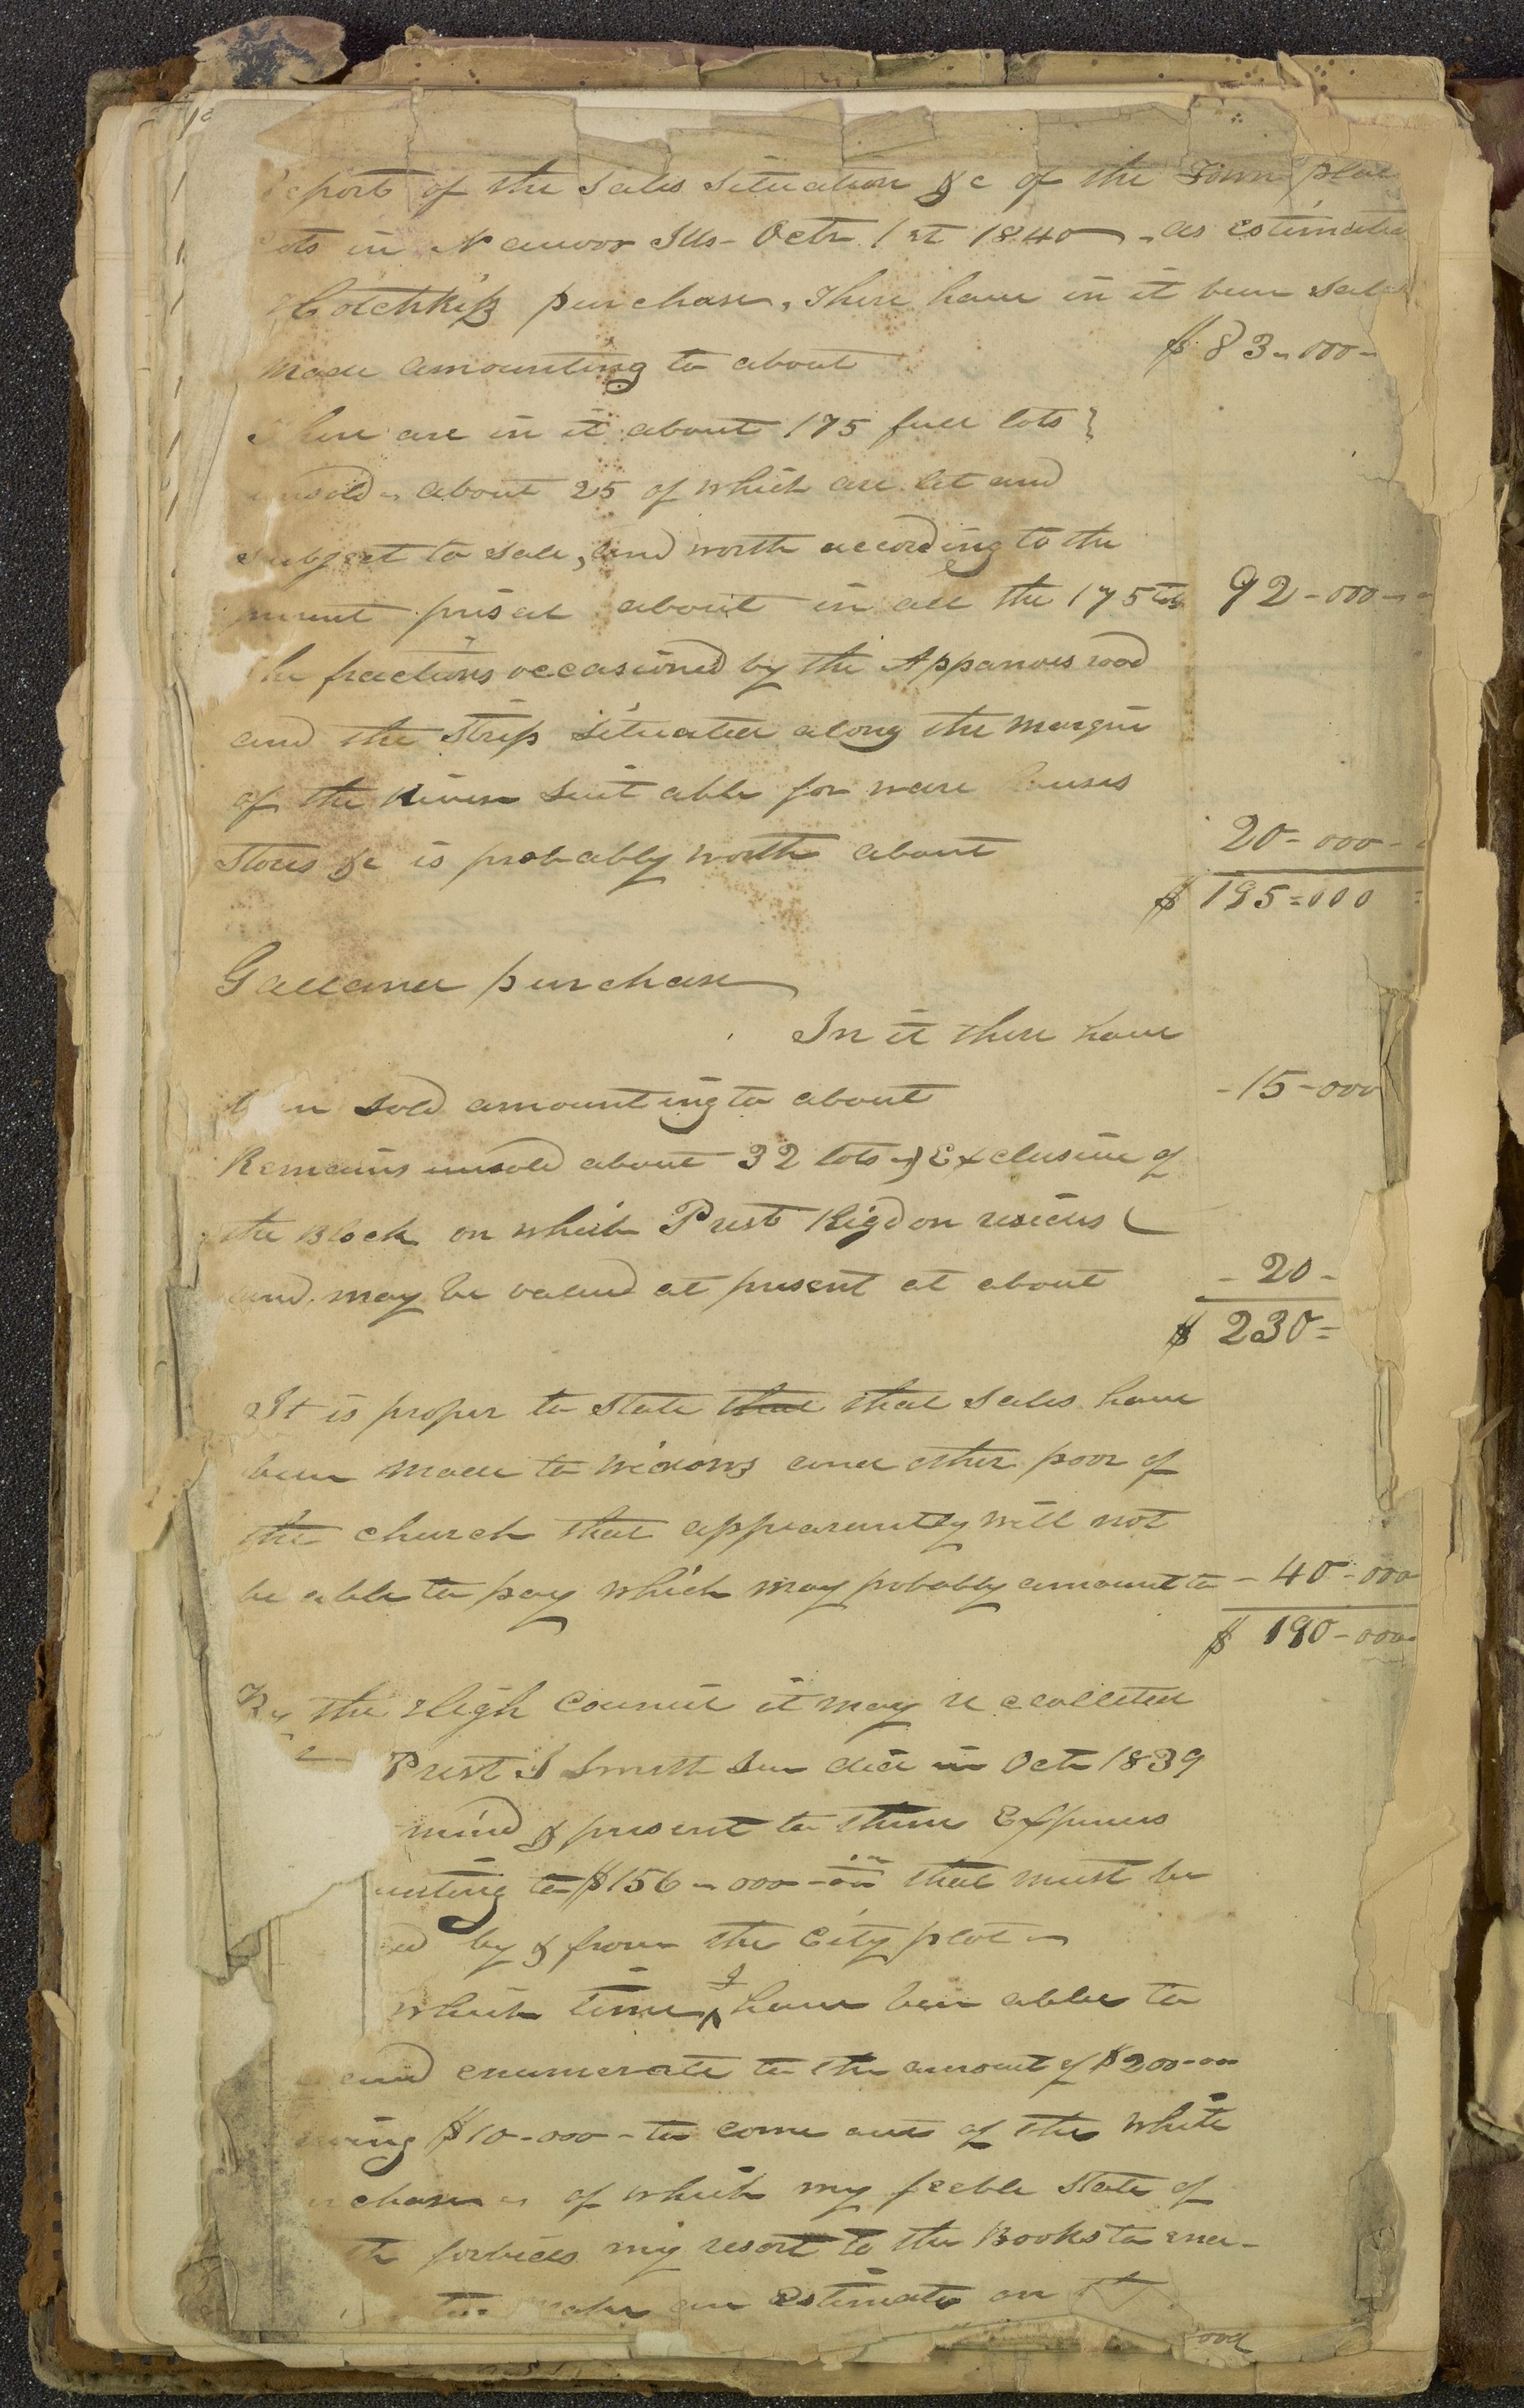 eport of the Sales Situation &c of the Town plat
ots in Nauvoo Ills - Octr. 1st 1840 - as estimated
Hotchkiss purchase, There have in it been sales
made amounting to about $83-000-
There are in it about 175 full lots }
unsold - about 25 of which are let and
subject to sale, and worth according to the
about in all the 175 lots 92-000-
he fractions occasioned by the Appanoes road
and the Strip situated along the margin
of the River suit able for ware ouses
Stores &c is probably worth about 20-000-
$195=000
Galland purchase
In it there have
b n sold amounting to about -15-000
Remains unsold about 32 lots Exclusive of
the Block on which Prest Rigdon resides
and may be valued at present at about -20-
$230=
It is proper to state that that sales have
been made to widows and other poor of
the church that appearantly will not
be able to pay which may probably amount to -40-000
$190-000
By the High Council it may recollected
Prest J Smith Sen did in Octr 1839
mind & present to them Expenses
unting to $156-000-00 that must be
ed by & from the City plot -
which time I have been able to
and enumerate to the amount of $200-00
wing $10-000- to come out of the White
chase - of which my feeble state of
th forbids my resort to the Books to enu-
make an Estimate on
ood